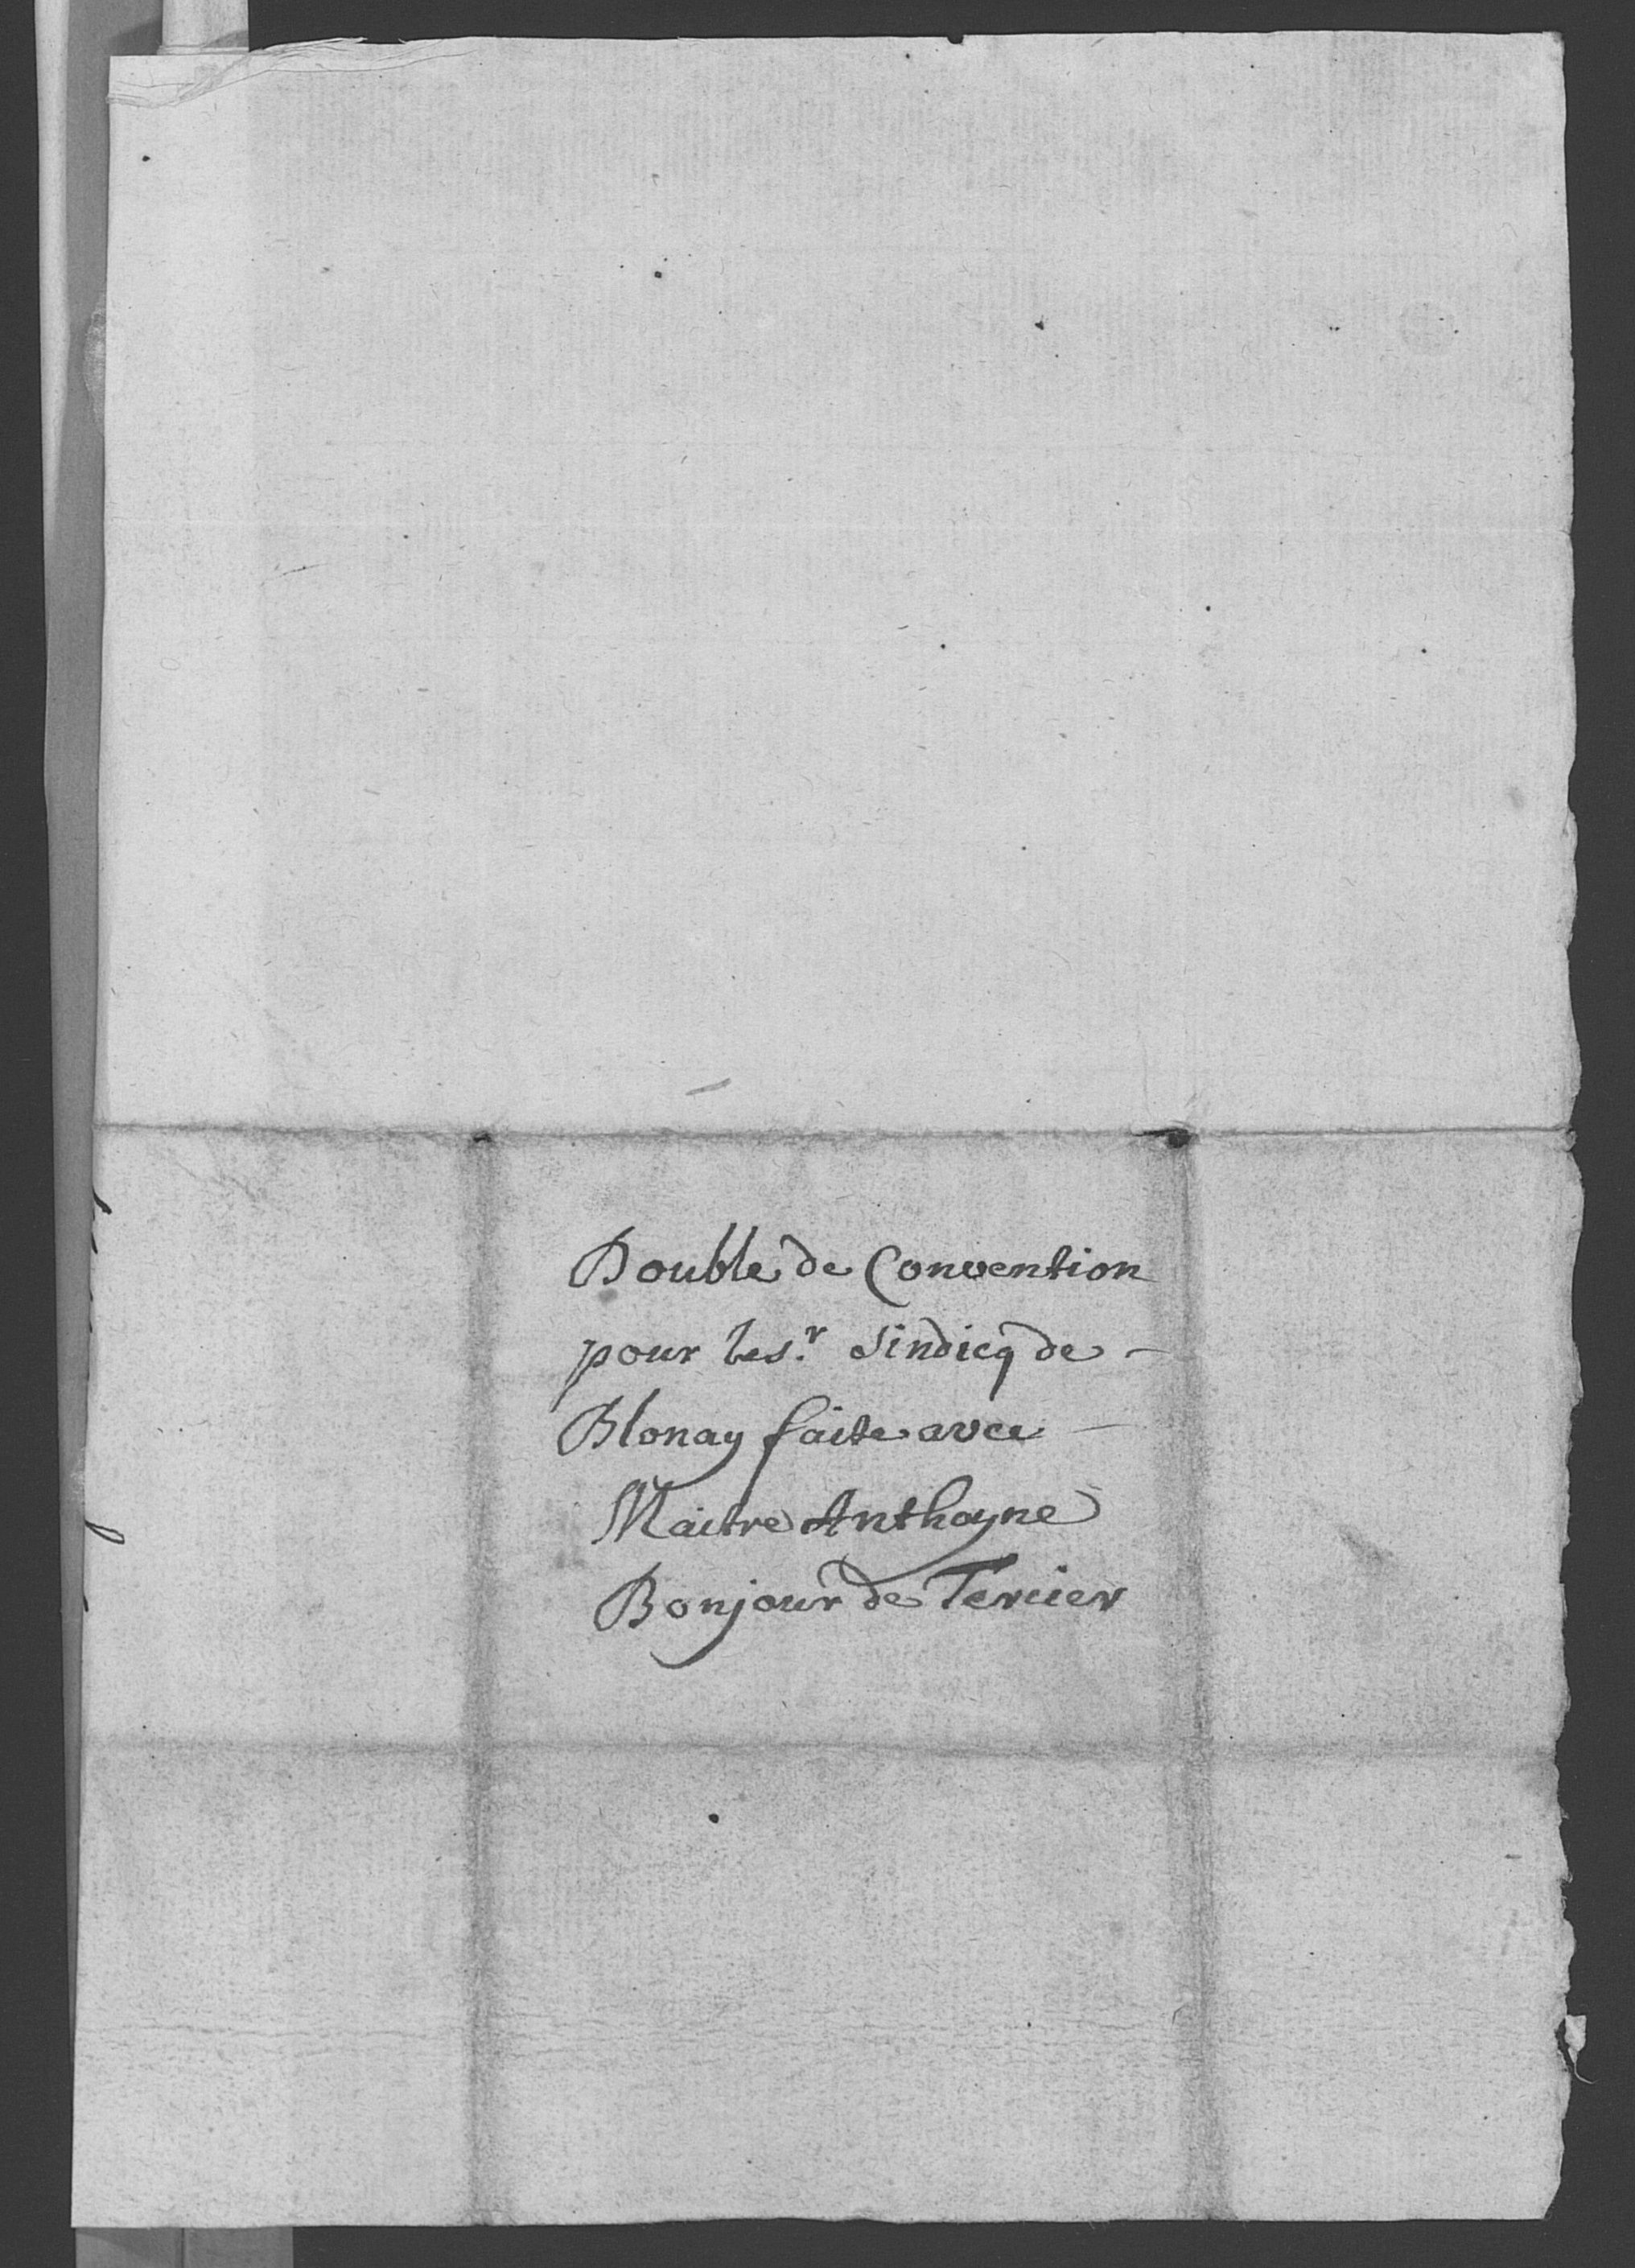 Double de Convention
pour les.r Sindicq de -
Blonay faite avec -
Maitre Anthoyne
Bonjour de Tercier